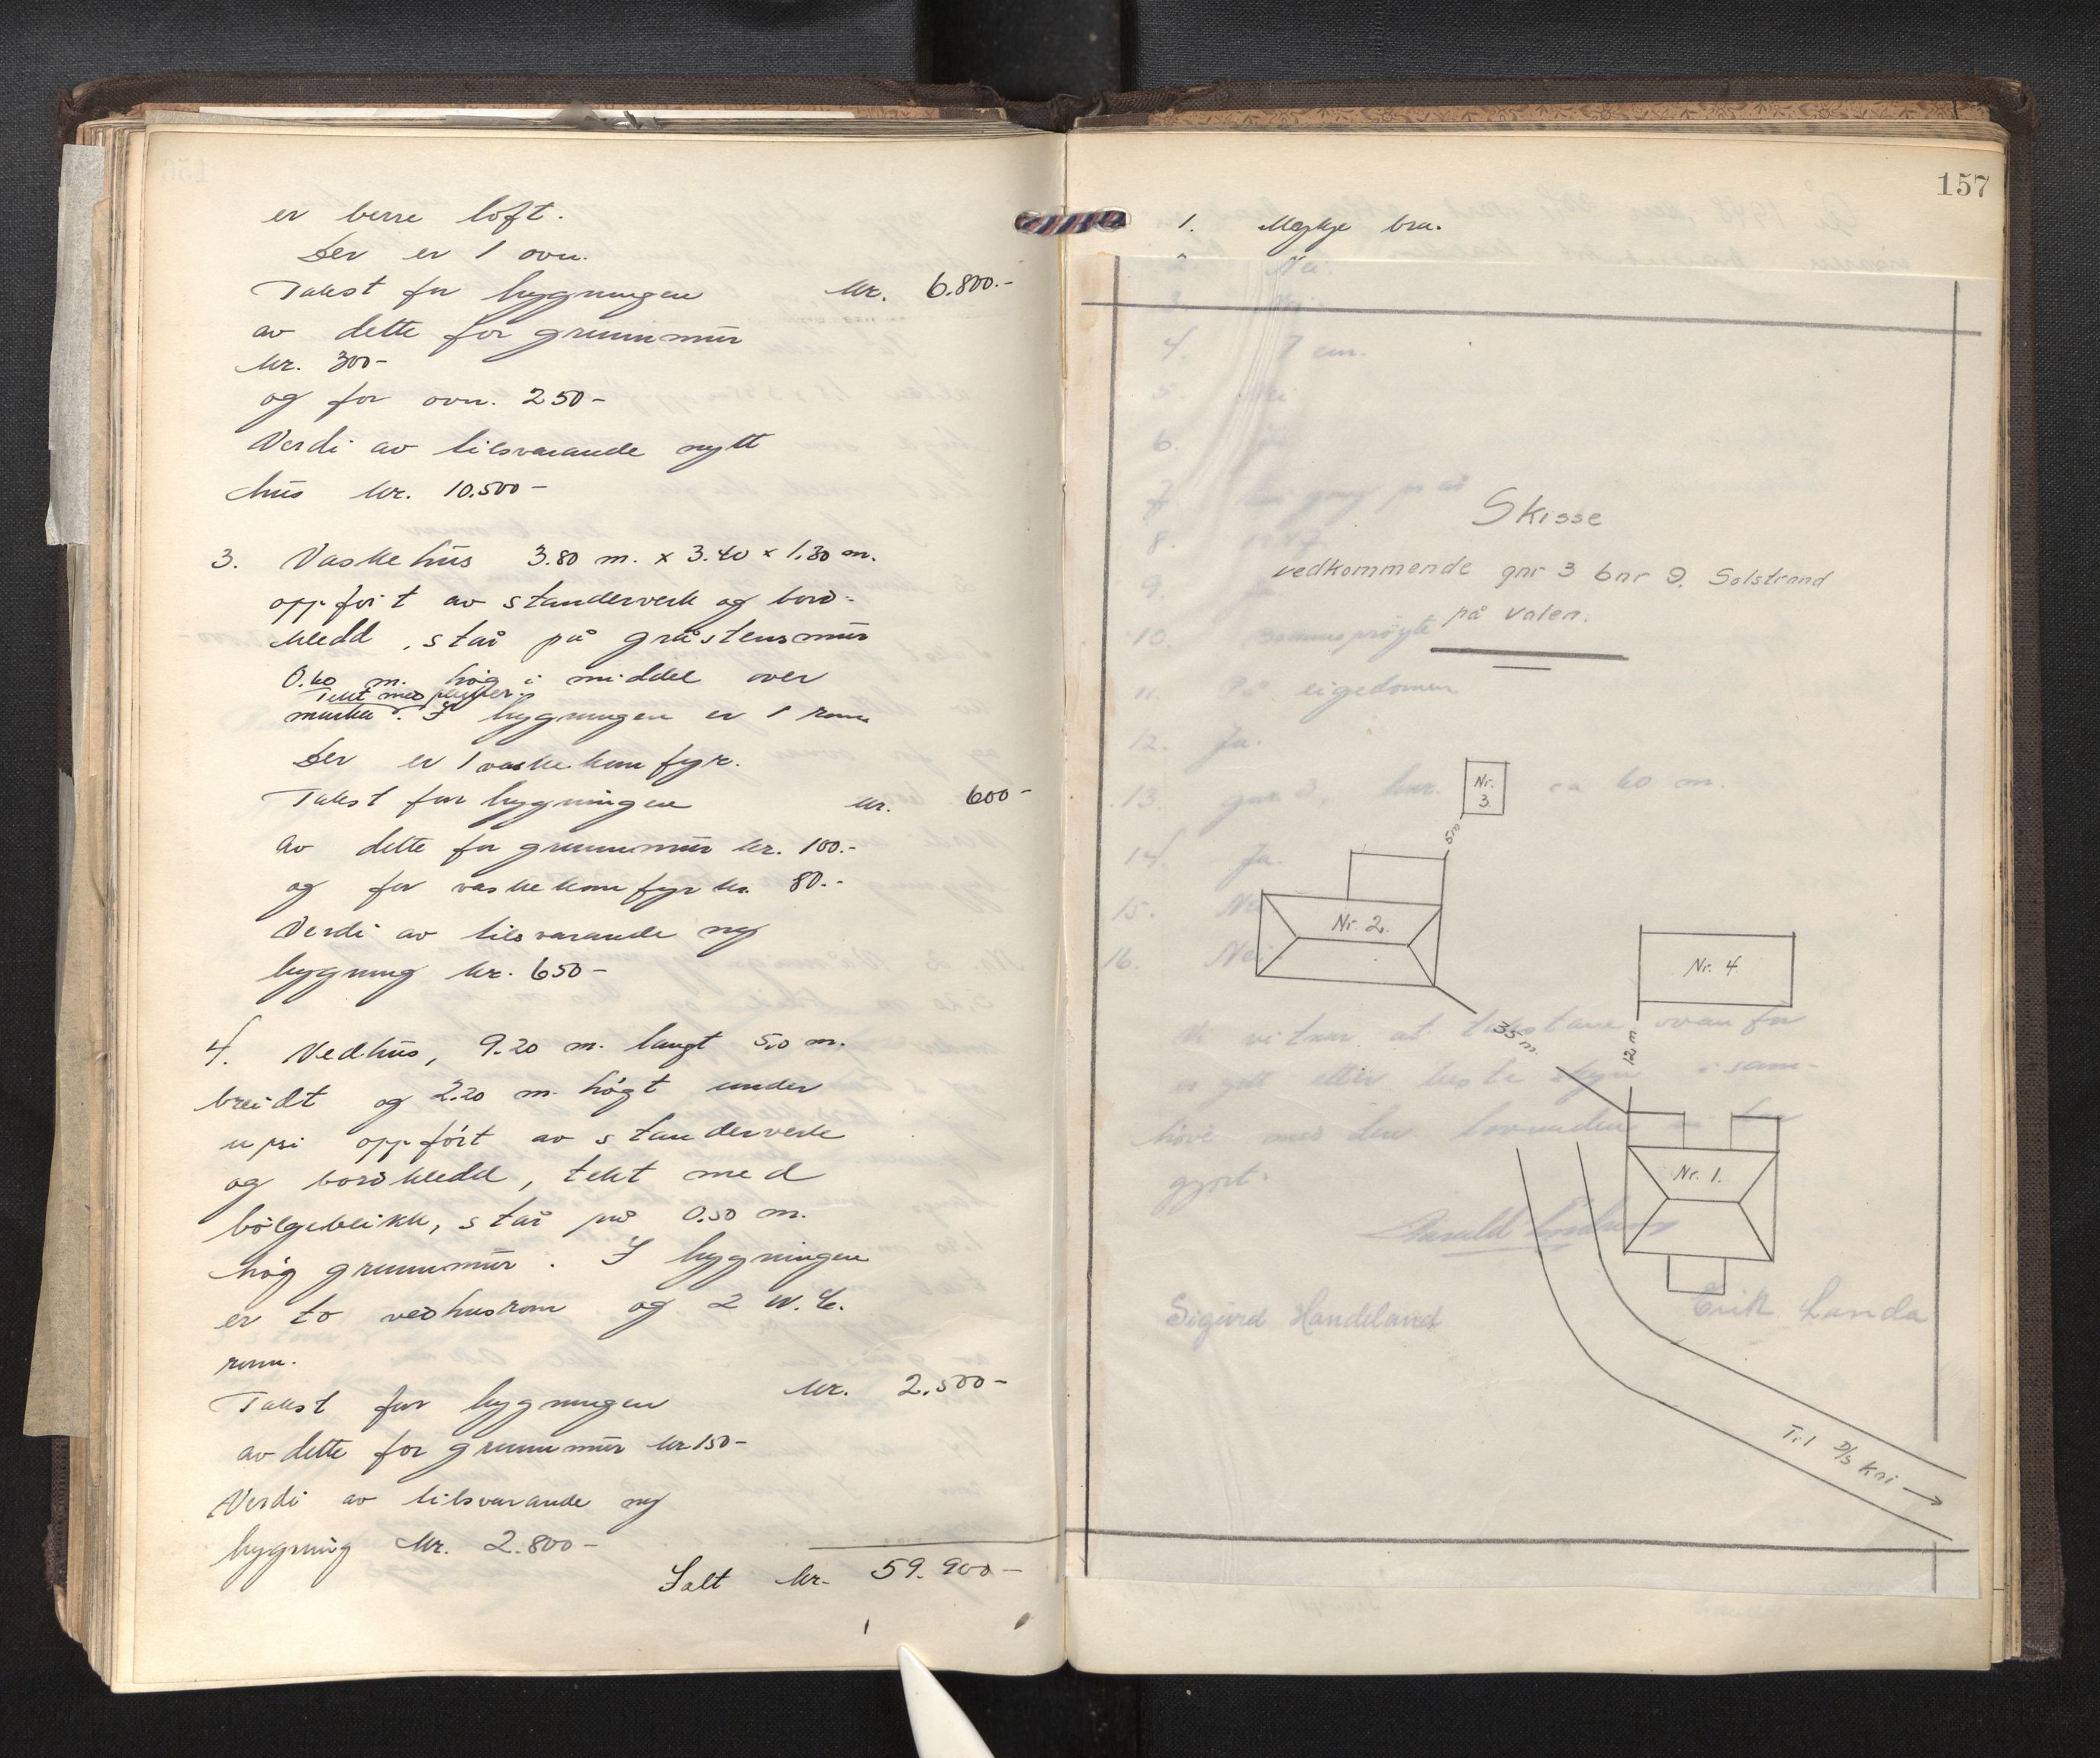 er berre loft.
Der er 1 ovn.
Takst for bygningen kr. 6.800.-
av dette for grunnmur
kr. 300-
og for ovn. 250-
Verdi av tilsvarande nytt
hus kr. 10.500-
3. Vaskehus 3.80 m. x 3.40 x 1.80 m.
oppført av standerverk og bord-
kledd, står på gråstensmur
0.60 m. høg i middel over
Tekt med
marka. I bygningen er 1 rom
Der er 1 vaskekomfyr.
Takst for bygningen kr. 600-
av dette for grunnmur kr. 100.-
og for vaskekomfyr kr. 80.-
Verdi av tilsvarande ny
bygning kr. 650-
4. Vedhus, 9.20 m. langt 5,0 m.
breidt og 2.20 m. høgt under
upsi oppført av standerverk
og bordkledd, tekt med
bølgeblikk, står på 0.50 m.
høg grunnmur. I bygningen
er to vedhusrom og 2 W.C.
rom.
Takst for bygningen kr. 2.500-
av dette for grunnmur kr 150-
Verdi av tilsvarande ny
bygning kr. 2.800-
I alt kr. 59.900-
157
1. Mykje bra.
2. Nei.
3. Nei
4. 7 cm.
5. Nei
6.
7.
8.
9.
10.
11. På eigedomen
12. Ja.
13. gnr. 3, bnr. ca 60 m.
14. Ja.
15. Nei
16. Nei
Skisse
vedkommende gnr 3 bnr 9. Solstrand
på Valen.
Nr. 3.
5,0
Nr. 2.
Nr. 4.
35 m.
12 m.
Nr. 1.
Til D/S Kai →
Vi vitnar at takstane ovanfor
er gjett etter beste skjyn i sam-
høve med den lovnaden vi har
gjort.
Sigurd Handeland
Erik Landa